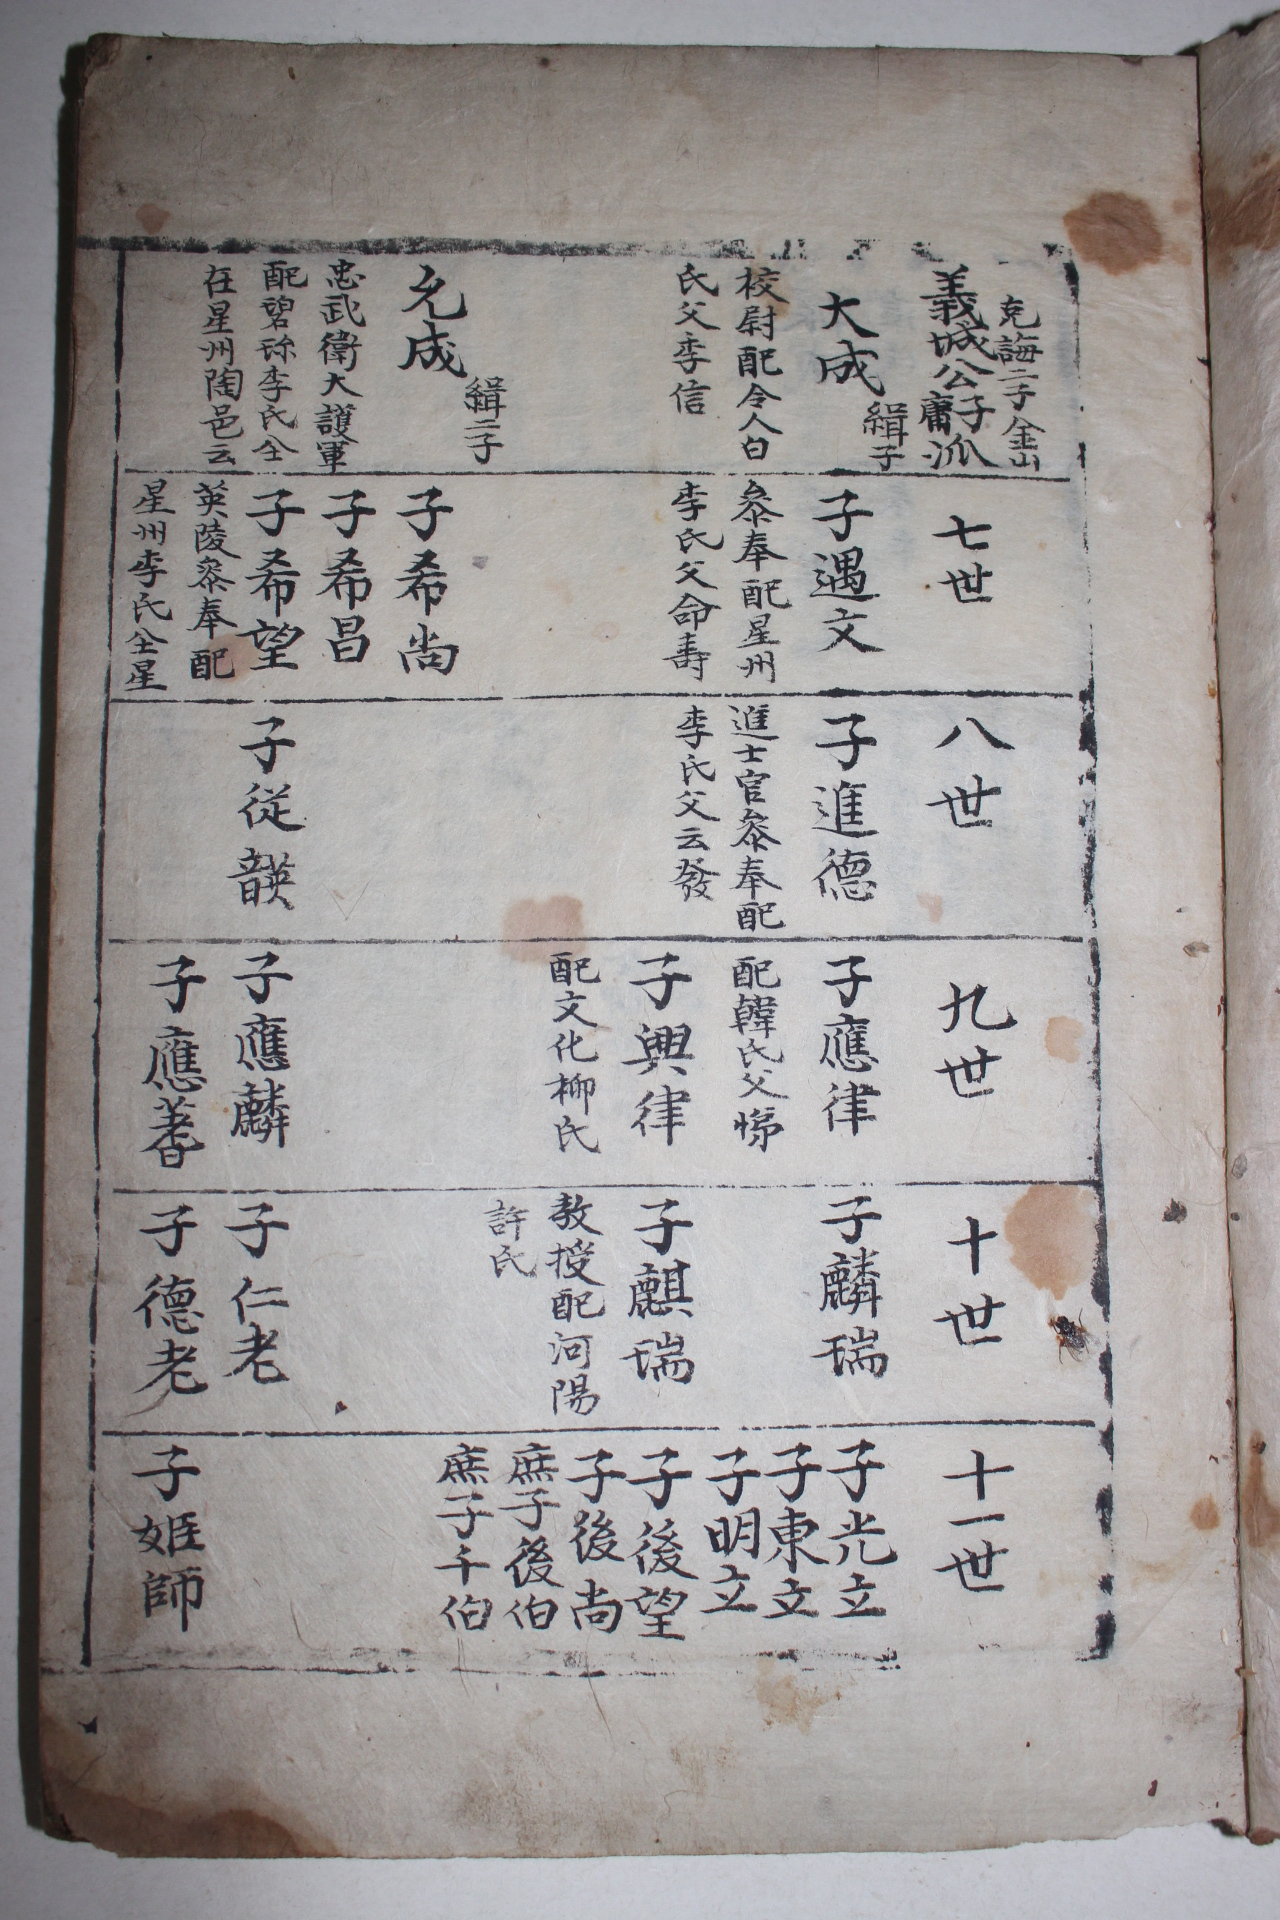 克誨二子金山
義城公子庸派
大成
緝子
校尉配令人白
氏父季信
允成
緝二子
忠武衛大護軍
配碧珎李氏仝
在星州陶邑云
七世
子遇文
叅奉配星州
李氏父命壽
子希尚
子希昌
子希望
英陵叅奉配
星州李氏仝星
八世
子進德
進士官叅奉配
李氏父云發
子従韺
九世
子應律
配韓氏父悌
子興律
配文化柳氏
子應麟
子應蓍
十世
子麟瑞
子麒瑞
教授配河陽
許氏
子仁老
子德老
十一世
子光立
子東立
子明立
子後望
子後尚
庶子後伯
庶子千伯
子姬師